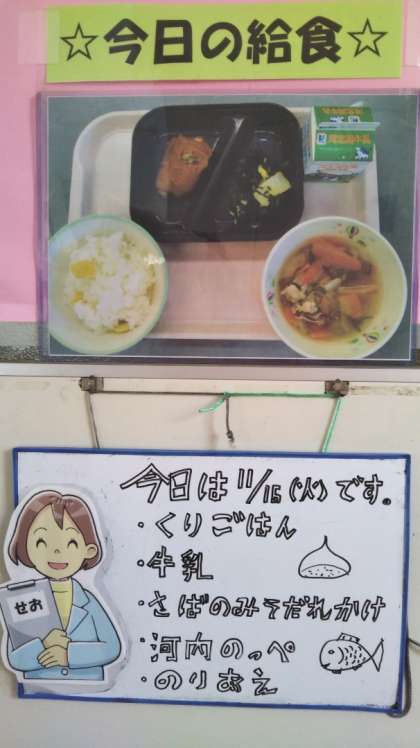 ☆今日の給食☆
今日は11/15(火)です。
・くりごはん
・牛乳
・さばのみそだれかけ
・河内のっぺ
・のりあえ
せお